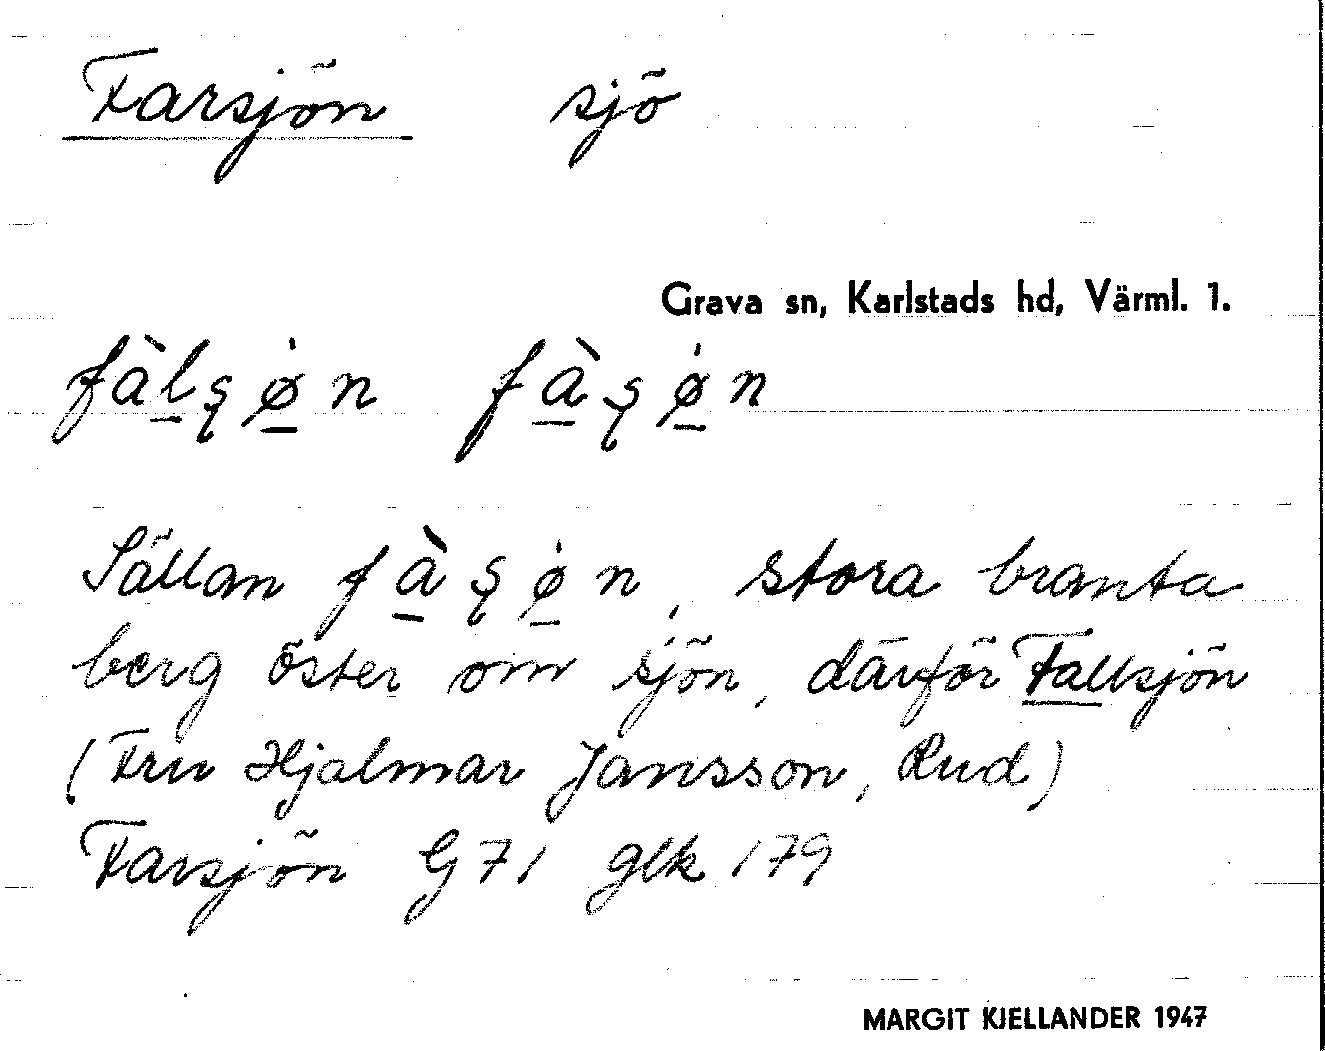 Farsjön sjö
Grava sn, Karlstads hd, Värml. 1.
fàlʂø̀n fàʂø̀n
Sällan fàʂø̀n, stora branta
berg öster om sjön, därför Fallsjön
(Fru Hjalmar Jansson, Rud)
Farsjön G 71 glk 179
MARGIT KJELLANDER 1947